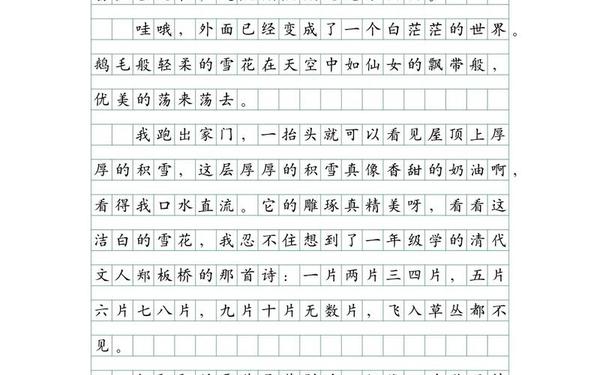 哇哦，外面已经变成了一个白茫茫的世界。
鹅毛般轻柔的雪花在天空中如仙女的飘带般，
优美的荡来荡去。
我跑出家门，一抬头就可以看见屋顶上厚
厚的积雪，这层厚厚的积雪真像香甜的奶油啊，
看得我口水直流。它的雕琢真精美呀，看看这
洁白的雪花，我忍不住想到了一年级学的清代
文人郑板桥的那首诗：一片两片三四片，五片
六片七八片，九片十片无数片，飞入草丛都不
见。